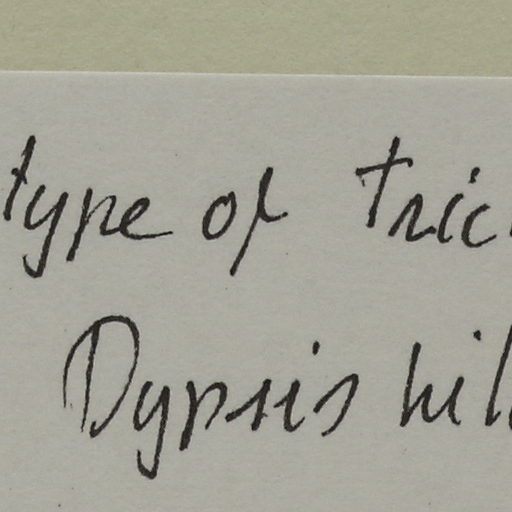 type of tric
Dypsis hil